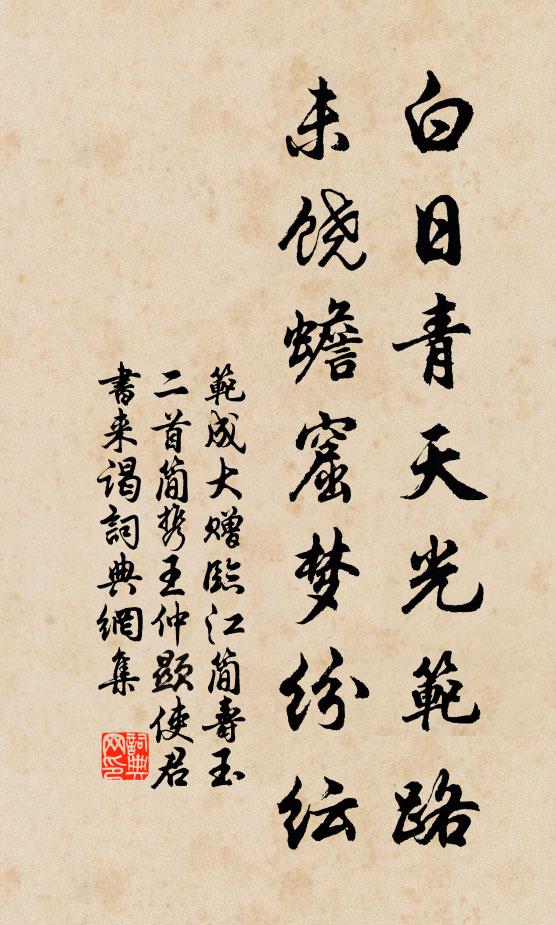 白日青天光範路
未饶蟾窟梦纷纭
範成大贈臨江简壽玉
二首简携王仲顯使君
書来谒詞典網集
詞典網印